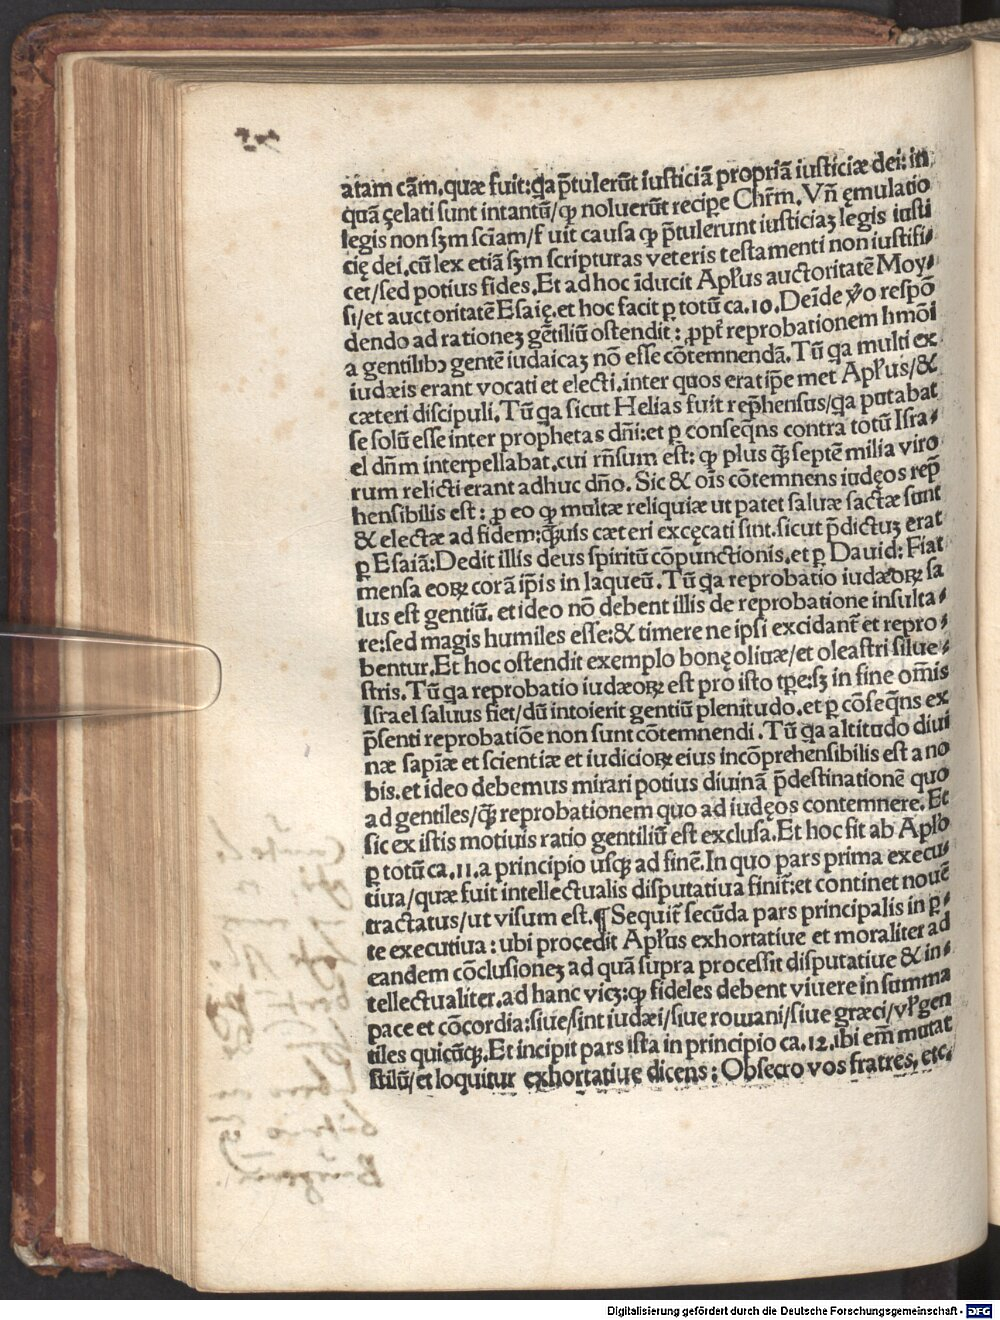 atam cãm.quæ fuit:q̃a p̃tulerũt iusticiã propriã iusticiæ dei: in
quã çelati sunt intantũ/ꝙ noluerũt recipe Chr̃m. Vñ ęmulatio
legis non sꝫm sciam/fuit causa ꝙ p̃tulerunt iusticiaꝫ legis iusti
cię dei.cũ lex etiã sꝫm scripturas veteris testamenti non iustifi⸗
cet/sed potius fides.Et ad hoc iducit Apl̃us auctoritatẽ Moy⸗
si/et auctoritatẽ Esaię.et hoc facit ꝑ totũ ca.10.Deĩde v̾o respõ
dendo ad rationeꝫ gẽtiliũ ostendit: ꝓpt̃ reprobationem hmõi
a gentilibꝰ gentẽ iudaicaꝫ nõ esse cõtemnendã.Tũ q̃a multi ex
iudæis erant vocati et electi.inter quos erat ip̃e met Apl̃us/&
cæteri discipuli.Tũ q̃a sicut Helias fuit rep̃hensus/q̃a putabat
se solũ esse inter prophetas dñi:et ꝑ conseq̃ns contra totũ Isra⸗
el dñm interpellabat.cui rñsum est: ꝙ plus q̃ʒ septẽ milia viro
rum relicti erant adhuc dño. Sic & oĩs cõtemnens iudęos rep̃
hensibilis est: ꝑ eo ꝙ multæ reliquiæ ut patet saluæ factæ sunt
& electæ ad fidem:q̃ʒuis cæteri excęcati sint.sicut p̃dictuꝫ erat
ꝑ Esaiã:Dedit illis deus spiritũ cõpunctionis.et ꝑ Dauid: Fiat
mensa eoꝝ corã ip̃is in laqueũ. Tũ q̃a reprobatio iudæoꝝ sa
lus est gentiũ. et ideo nõ debent illis de reprobatione insulta⸗
re:sed magis humiles esse:& timere ne ipsi excidant̃ et repro⸗
bentur.Et hoc ostendit exemplo bonę oliuæ/et oleastri silue⸗
stris. Tũ q̃a reprobatio iudæoꝝ est pro isto tp̃e:sꝫ in fine om̃is
Israel saluus fiet/dũ intoierit gentiũ plenitudo.et ꝑ cõseq̃ns ex
p̃senti reprobatiõe non sunt cõtemnendi.Tũ q̃a altitudo diui
næ sapiæ et scientiæ et iudicioꝝ eius incõprehensibilis est a no
bis.et ideo debemus mirari potius diuinã p̃destinationẽ quo
ad gentiles/q̃ʒ reprobationem quo ad iudęos contemnere. Et
sic ex istis motiuis ratio gentiliũ est exclusa.Et hoc fit ab Apl̃o
ꝑ totũ ca.11.a principio usqʒ ad finẽ.In quo pars prima execu⸗
tiua/quæ fuit intellectualis disputatiua finit̃:et continet nouẽ
tractatus/ut visum est.¶ Sequit̃ secũda pars principalis in ꝑ⸗
te executiua: ubi procedit Apl̃us exhortatiue et moraliter ad
eandem cõclusioneꝫ ad quã supra processit disputatiue & in⸗
tellectualiter.ad hanc vicꝫ:ꝙ fideles debent viuere in summa
pace et cõcordia:siue sint iudæi/siue romani/siue græci/vl̃ gen
tiles quicũqʒ.Et incipit pars ista in principio ca.12.ibi em̃ mutat
stilũ/et loquitur exhortatiue dicens: Obsecro vos fratres, etc.
Digitalisierung gefördert durch die Deutsche Forschungsgemeinschaft - DFG